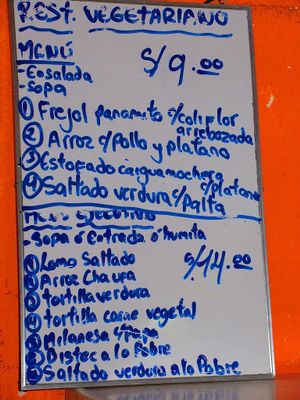 REST. VEGETARIANO
MENÚ
S/9.00
- Ensalada
- Sopa
① Frejol panamito c/coliflor arrebozada
② Arroz c/pollo y platano
③ Estofado caiguamochera c/platano
④ Saltado verdura c/Palta
MENU EJECUTIVO
- Sopa o Entrada o humita
S/.14.00
① Lomo Saltado
② Arroz Chaufa
③ tortilla verdura
④ tortilla carne vegetal
⑤ Milanesa c/papa
⑥ Bistec a lo Pobre
Saltado verdura a lo Pobre